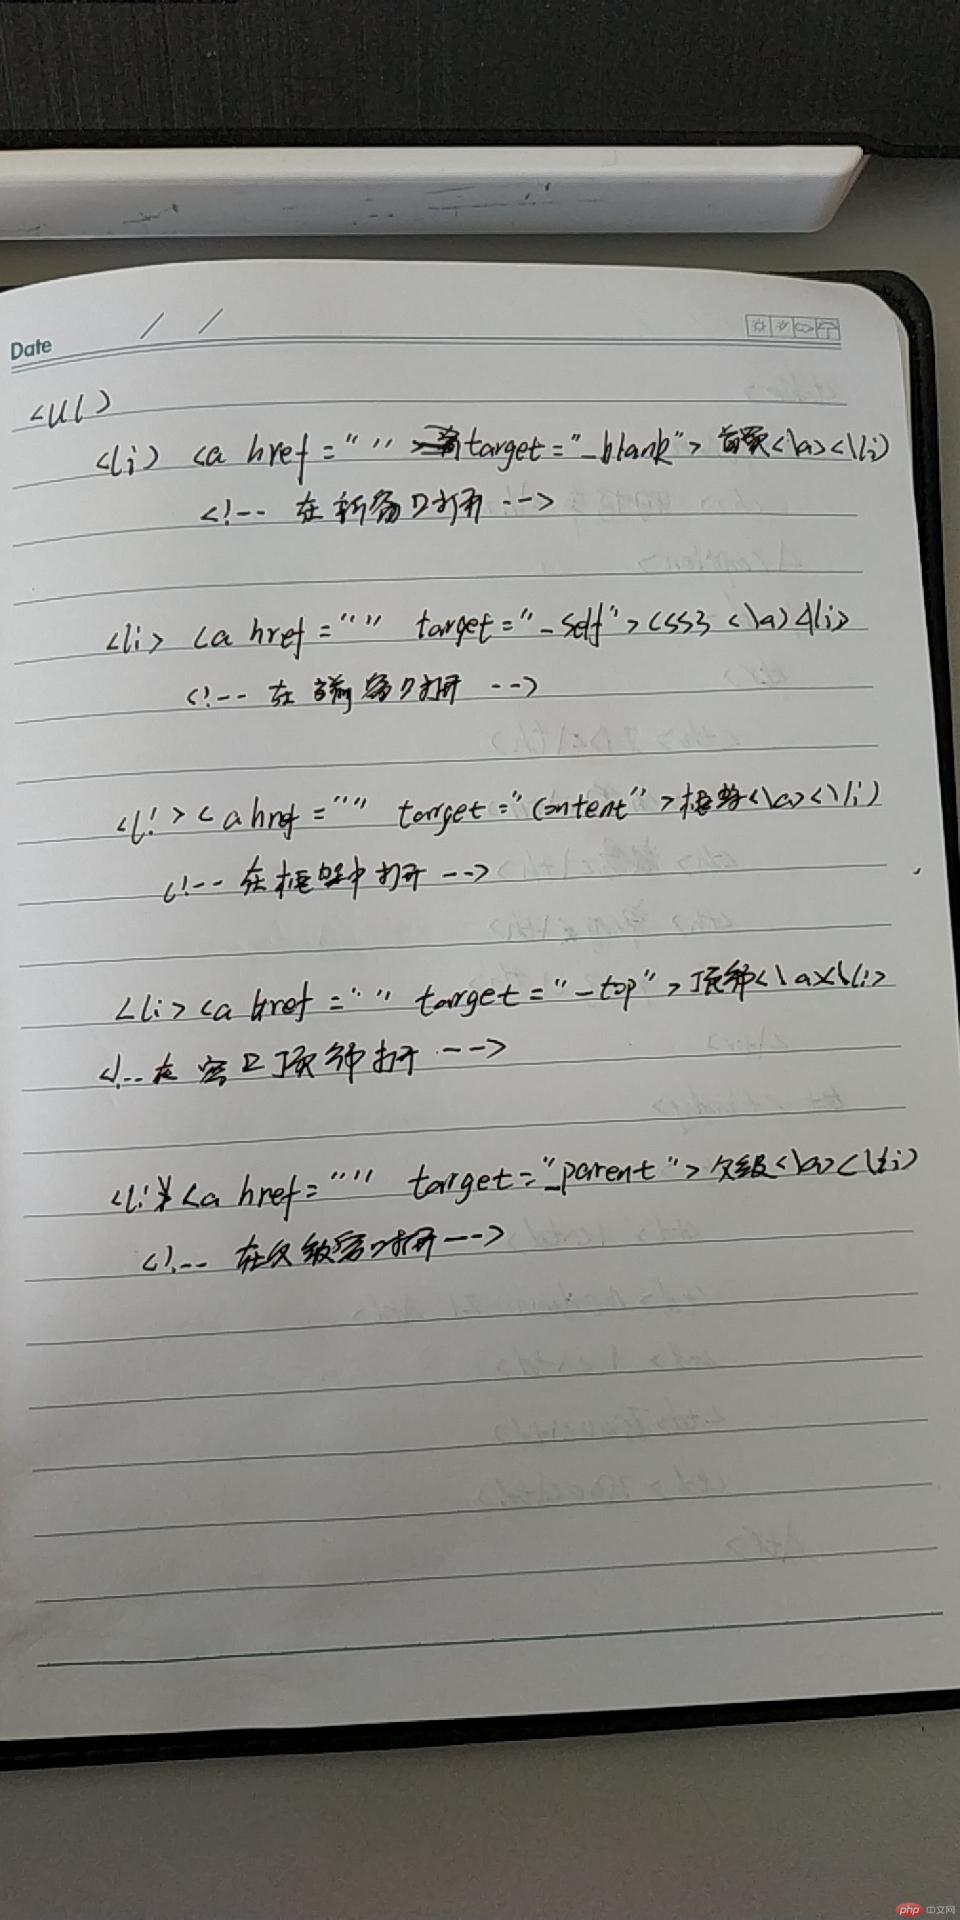 Date / /
<ul>
<li> <a href="" target="_blank"> 首页<\a><\li>
<!-- 在新窗口打开 -->
<li> <a href="" target="_self">CSS3 <\a><\li>
<!-- 在当前窗口打开 -->
<li><a href="" target="content">框架<\a><\li>
<!-- 在框架中打开 -->
<li><a href="" target="_top">顶部<\a><\li>
<!-- 在窗口顶部打开 -->
<li><a href="" target="_parent">父级<\a><\li>
<!-- 在父级窗口打开-->
php 中文网